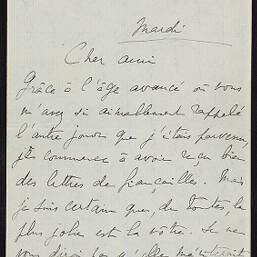 Mardi
Cher ami
Grâce à l'âge avancé où vous
m'avez si aimablement rappelé
l'autre jour que j'étais parvenu,
je commence à avoir reçu bien
des lettres de fiançailles. Mais
je suis certain que, de toutes, la
plus jolie est la vôtre. Je ne
vous dirai pas qu'elle m'